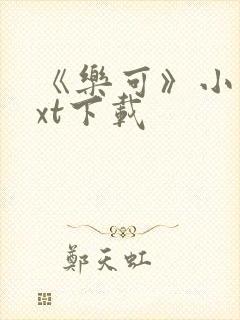 《樂可》小
xt下載
鄭天虹